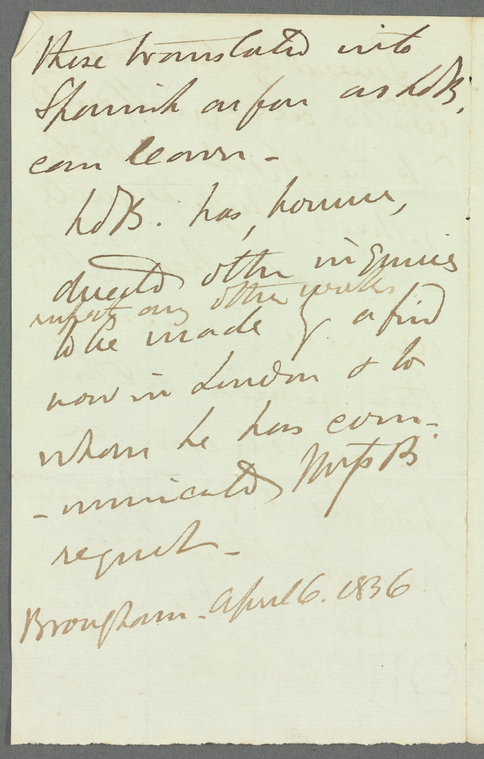 these translated into
Spanish as far as Ld B.
can learn -
Ld B. has, however,
directed other inquiries
respectg any other works
to be made by a frd
now in London & to
whom he has com-
-municated Miss B's
request -
Brougham - April 6. 1836